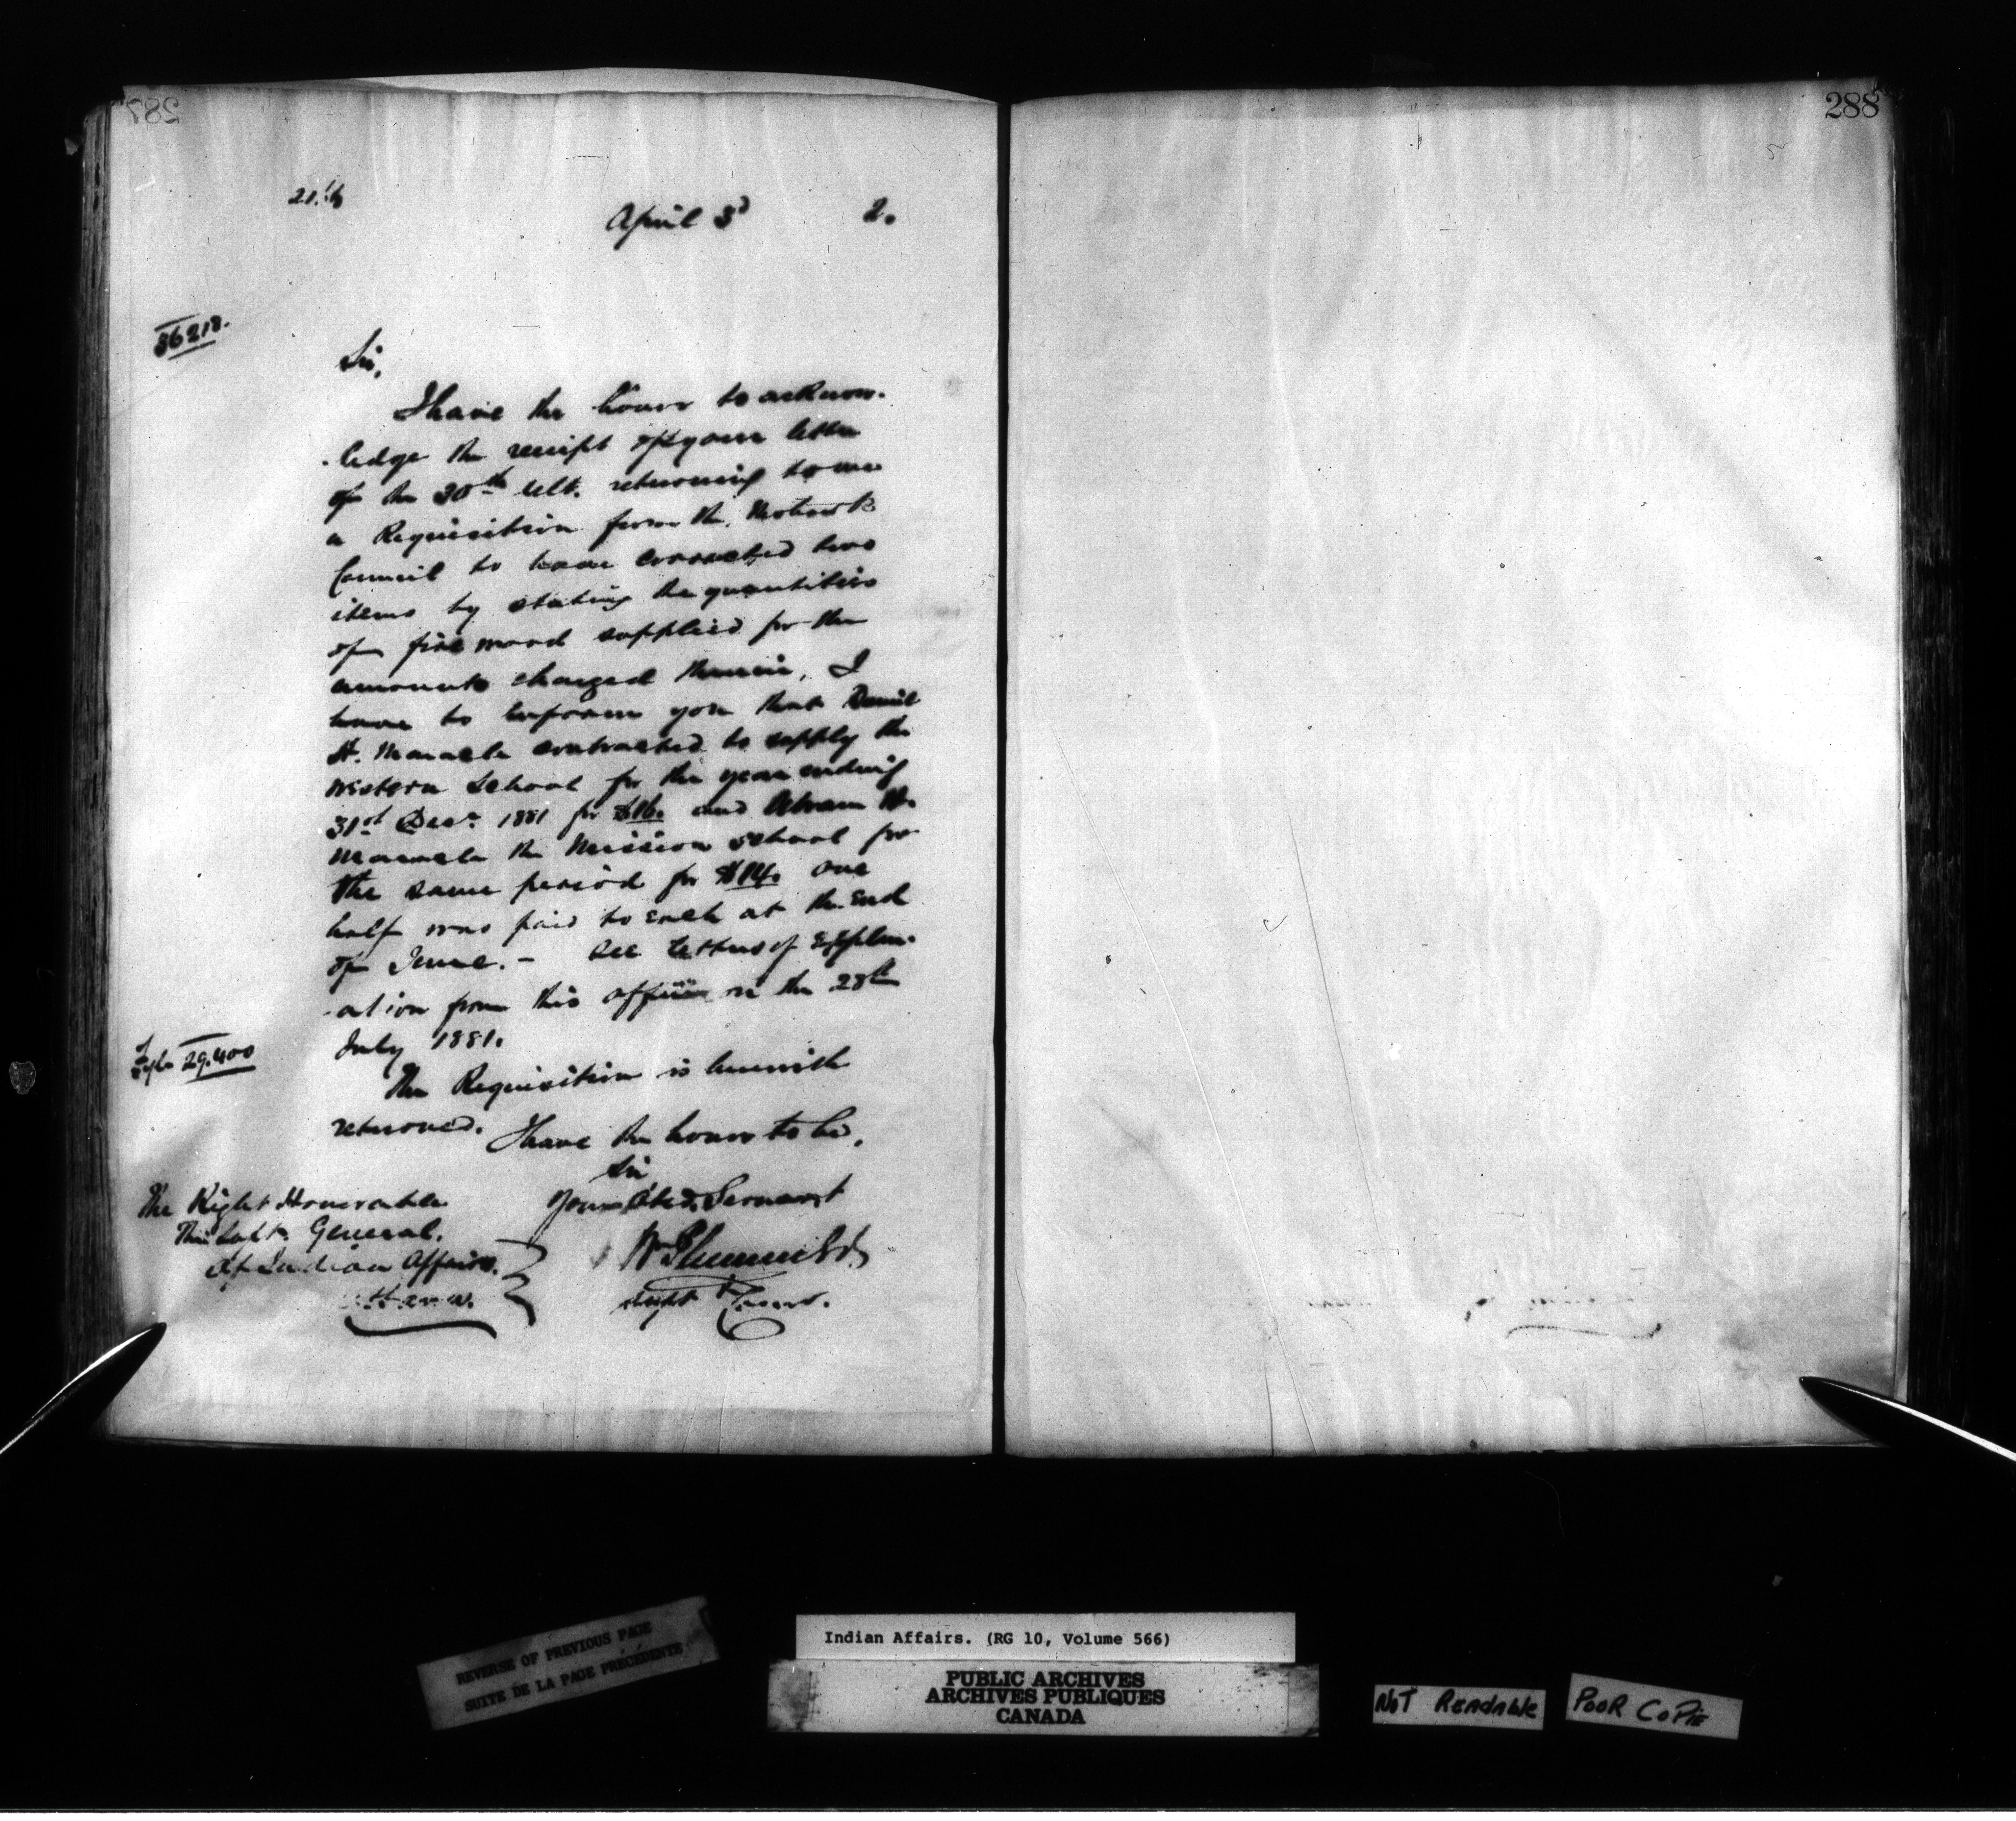 287
288
April 3d 2.
36218.
Sir,
I have the honor to acknow-
-ledge the receipt of your letter
of the 30th ult. returning to me
a Requisition from the Mohawk
Council to have corrected two
items by stating the quantities
of fire wood supplied for the
amounts charged therein, I
have to inform you that Daniel
H. Maracle contracted to supply the
Western School for the year ending
31st Decr. 1881 for $16. and Abram H.
Maracle the Mission School for
the same period for $14. one
half was paid to each at the End
of June. - See letter of Explan-
-ation from this office on the 28th
July 1881.
29.400
The Requisition is herewith
returned. I have the honor to be,
Sir
Your Obed. Servant
The Right Honorable
The Supt. General
Of Indian Affairs.
Ottawa.
Wm Plummer
Supt & Comr.
REVERSE OF PREVIOUS PAGE
SUITE DE LA PAGE PRÉCÉDENTE
Indian Affairs. (RG 10, Volume 566)
PUBLIC ARCHIVES
ARCHIVES PUBLIQUES
CANADA
NOT READABLE
POOR COPIE